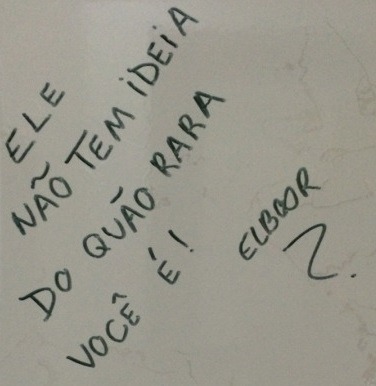 ELE
NÃO TEM IDEIA
DO QUÃO RARA
VOCÊ É!